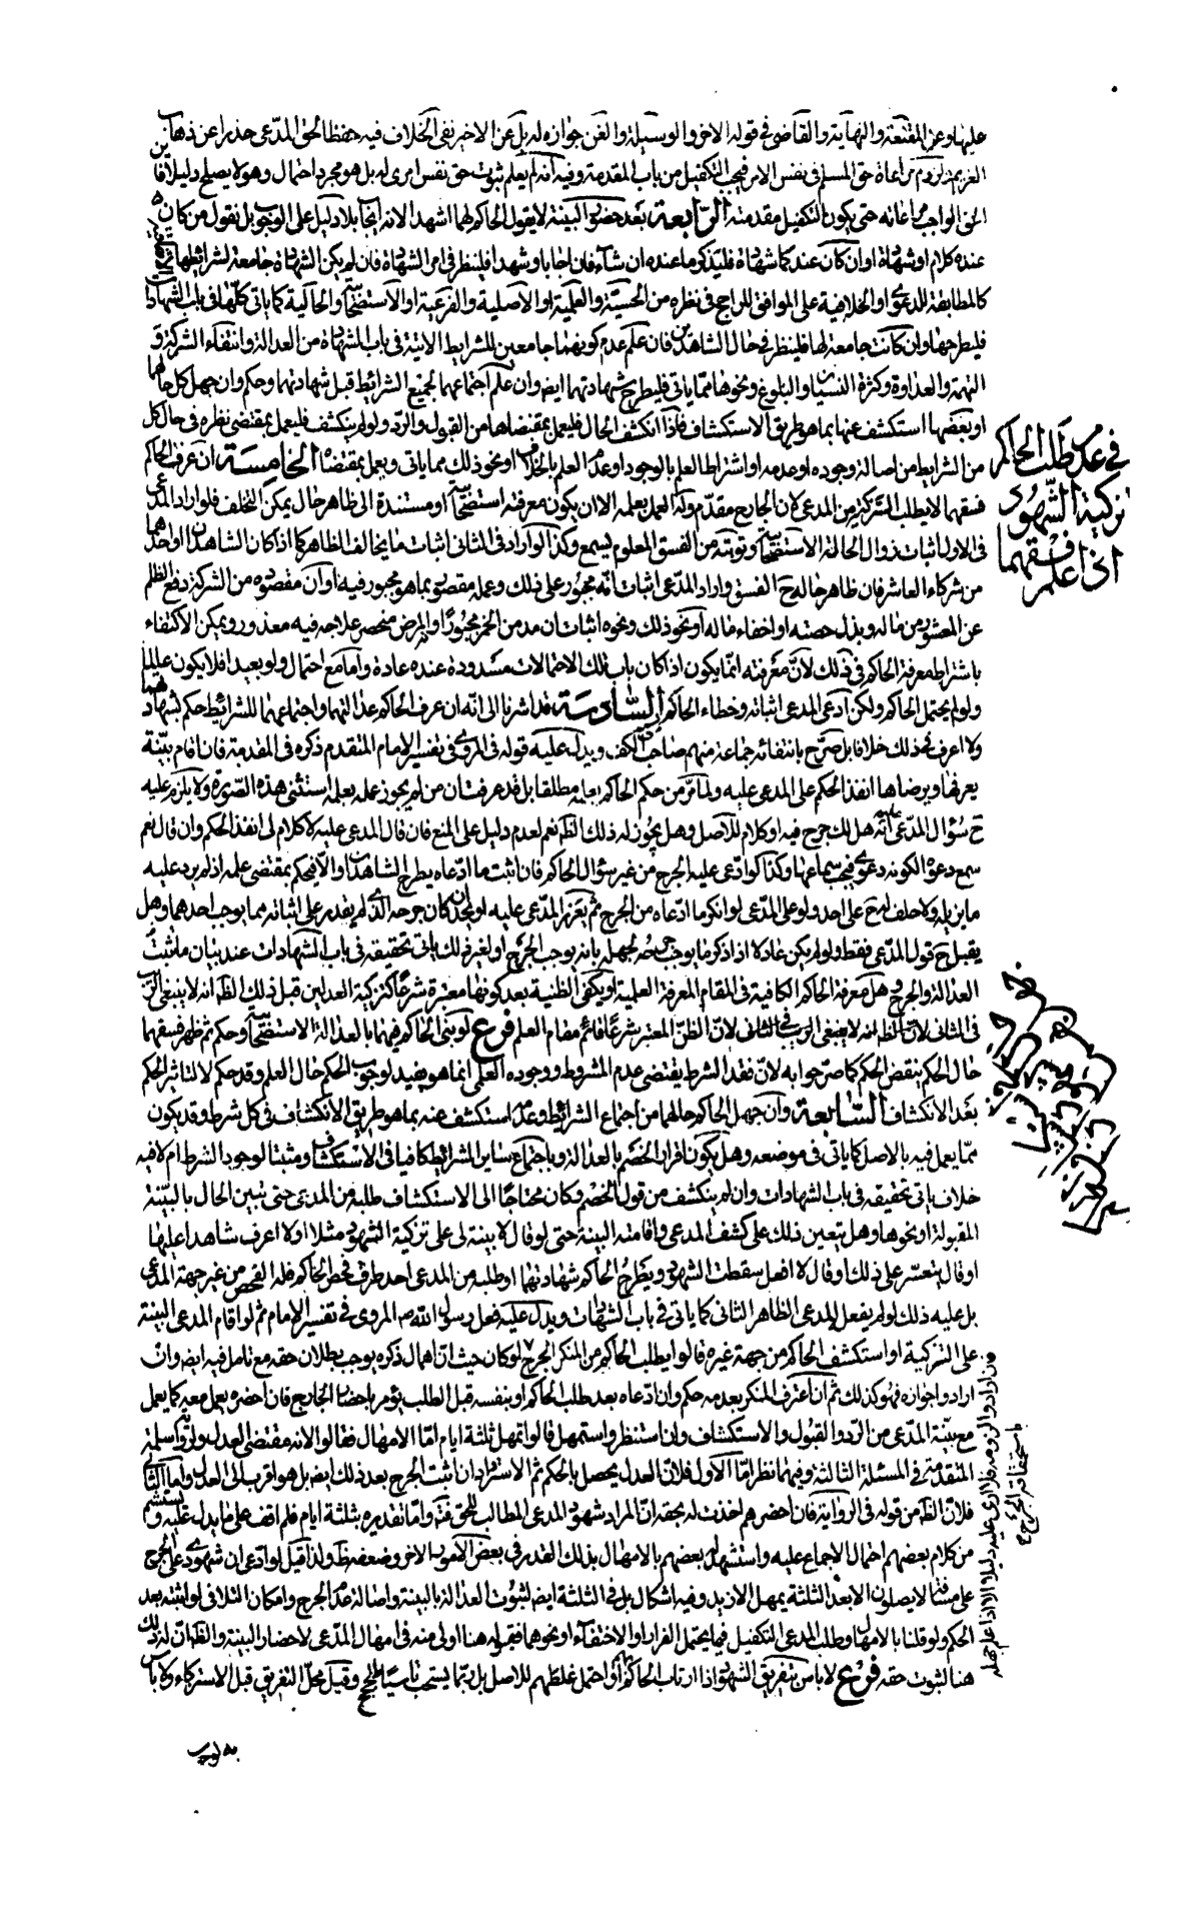 عليها وعن المقنعة والنهاية والقاضى فى قوله الاخر والوسيلة والغنى جوازه له بل عن الاخير نفى الخلاف فيه حفظا لحق المدعى حذرا عن ذهاب
الغريم ولزوم مراعاة حق المسلم فى نفس الامر فيجب التكفيل من باب المقدمة وفيه انه لم يعلم ثبوت حق نفس امرى له بل هو مجرد احتمال وهو لا يصلح دليلا
الحق الواجب مراعاته حتى يكون التكفيل مقدمته الرابعة بعد حضور البينة لا يقول الحاكم لهما اشهدا لانه ايجاب بلا دليل على الوجوب بل يقول من كان
عنده كلام او شهادة او ان كان عندكما شهادة فليذكر ما عنده ان شاء فان اجابا وشهدا فلينظر فى امر الشهادة فان لم يكن الشهادة جامعة لشرائطها
كالمطابقة للدعوى او الخلافية على الموافق للراجح فى نظره من الحسية والعلمية او الاصلية والفرعية او الاستصحابية والحالية كما ياتى كلها فى باب الشهادات
فليطرحها وان كانت جامعة لها فلينظر فى حال الشاهدين فان علم عدم كونهما جامعين للشرايط الاتية فى باب الشهادة من العدالة وانتفاء الشركة و
التهمة والعداوة وكثرة النسيان والبلوغ ونحوها مما ياتى فليطرح شهادتهما ايضا وان علم اجتماعهما لجميع الشرائط قبل شهادتهما وحكم وان جهل كل حالهما
او بعضها استكشف عنها بما هو طريق الاستكشاف فاذا انكشف الحال فليعمل بمقتضاها من القبول والرد ولو لم ينكشف فليعمل بمقتضى نظره فى حال كل
من الشرايط من اصالة وجوده او عدمه او اشتراط العلم بالوجود او عدم العلم بالخلاف او نحو ذلك مما ياتى ويعمل بمقتضاه الخامسة ان عرف الحاكم
فسقهما لا يطلب التزكية من المدعى لان الجارح مقدم وله العمل بعلمه الا ان يكون معرفته استصحابية او مستندة الى ظاهر حال يمكن التخلف فلو اراد المدعى
فى الاول اثبات زوال الحالة الاستصحابية وتوبته من الفسق المعلوم يسمع وكذا لو اراد فى الثانى اثبات ما يخالف الظاهر كما اذا كان الشاهدان او احدهما
من شركاء العاشر فان ظاهر حاله ح الفسق واراد المدعى اثبات انه مجبور على ذلك وعمله مقصور بما هو مجبور فيه او ان مقصوده من الشركة دفع الظلم
عن المعشور من ماله وبذل حصته او اخفاء ماله او نحو ذلك ونحوه اثبات ان مدمن الخمر مجبور او لمرض منحصر علاجه فيه معذور ويمكن الاكتفاء
باشتراط معرفة الحاكم فى ذلك لان معرفته انما يكون اذا كان باب تلك الاحتمالات مسدودة عنده عادة واما مع احتمال ولو بعيدا فلا يكون عالما
ولو لم يحتمل الحاكم ولكن ادعى المدعى اثباته وخطاء الحاكم السادسة قد اشرنا الى انه ان عرف الحاكم عدالتهما واجتماعهما للشرائط حكم بشهادتهما
ولا اعرف فى ذلك خلافا بل صرح بانتفائه جماعة منهم صاحب الكف ويدل عليه قوله فى المروى فى تفسير الامام المتقدم ذكره فى المقدمة فان اقام بينة
يعرفها ويرضاها انفذ الحكم على المدعى عليه ولما مر من حكم الحاكم بعلمه مطلقا بل قد عرفت ان من لم يجوز عمله بعلمه استثنى هذه الصورة ولا يلزم عليه
ح سؤال المدعى عليه انه هل لك جرح فيه او كلام للاصل وهل يجوز له ذلك الظ نعم لعدم دليل على المنع فان قال المدعى عليه لا كلام لى انفذ الحكم وان قال نعم
سمع دعواه لكونه دعوى فيجب سماعها وكذا لو ادعى عليه الجرح من غير سؤال الحاكم فان اثبت ما ادعاه يطرح الشاهدان والا فيحكم بمقتضى علمه اذ لم يرد عليه
ما يزيله ولا حلف له ح على احد ولو على المدعى لو انكر ما ادعاه من الجرح
يقبل ح قول المدعى فقط ولو لم يكن عادلا اذا ذكر ما يوجب جرحه لجهله بانه يوجب الجرح او لغير ذلك ياتى تحقيقه فى باب الشهادات عند بيان ما يثبت
العدالة والجرح وهل معرفة الحاكم الكافية فى المقام المعرفة العلمية او يكفى الظنية بعد كونها معتبرة شرعا كتزكية العدلين قبل ذلك الظ انه لا ينبغى الريب
فى الثانى لان الظن المعتبر شرعا قائم مقام العلم فرع لو بنى الحاكم فيهما بالعدالة الاستصحابية وحكم ثم ظهر فسقهما
حال الحكم ينقض الحكم كما صرحوا به لان فقد الشرط يقتضى عدم المشروط ووجوده العلمى انما هو يفيد لوجوب الحكم حال العلم وقد حكم لا لتاثير الحكم
بعد الانكشاف السابعة وان جهل الحاكم حالهما من اجتماع الشرائط وعدمه استكشف عنه بما هو طريق الانكشاف فى كل شرط وقد يكون
مما يعمل فيه بالاصل كما ياتى فى موضعه وهل يكون اقرار الخصم بالعدالة وباجتماع ساير الشرائط كافيا فى الاستكشاف ومثبتا لوجود الشرط ام لا فيه
خلاف ياتى تحقيقه فى باب الشهادات وان لم ينكشف من قول الخصم وكان محتاجا الى الاستكشاف طلبه من المدعى حتى يتبين الحال بالبينة
المقبولة او نحوها وهل يتعين ذلك على كشف المدعى واقامته البينة حتى لو قال لا بينة لى على تزكية الشهود مثلا او لا اعرف شاهدا عليها
او قال يتعسر على ذلك او قال لا افعل سقطت الشهود ويطرح الحاكم شهادتهما او طلبه من المدعى احد طرق فحص الحاكم فله الفحص من غير جهة المدعى
بل عليه ذلك لو لم يفعل المدعى الظاهر الثانى كما ياتى فى باب الشهادات ويدل عليه فعل رسول الله ص المروى فى تفسير الامام ثم لو اقام المدعى البينة
على التزكية او استكشف الحاكم من جهة غيره قالوا يطلب الحاكم من المنكر الجرح لو كان حيث ان اهمال ذكره يوجب بطلان حقه مع تامل فيه ايضا وان
ارادوا جوازه فهو كذلك ثم ان اعترف المنكر بعدمه حكم وان ادعاه بعد طلب الحاكم او بنفسه قبل الطلب يؤمر باحضار الجارح فان احضره يعمل معه كما يعمل
مع بينة المدعى من الرد والقبول والاستكشاف وان استنظر واستمهل قالوا يمهل ثلثة ايام اما الامهال فقالوا لانه مقتضى العدل
المتقدمة فى المسئلة الثالثة وفيهما نظر اما الاول فلان العدل يحصل بالحكم ثم الاسترداد ان اثبت الجرح بعد ذلك ايضا بل هو اقرب الى العدل واما الثانى
فلان الظ من قوله فى الرواية فان احضرهم اخذت له بحقه ان المراد شهود المدعى المطالب للحق واما تقديره بثلثة ايام فلم اقف على ما يدل عليه ويستشم
من كلام بعضهم احتمال الاجماع عليه واستشهد له بعضهم بالامهال بذلك القدر فى بعض الامور الاخر وضعفه ظ ولذا قيل لو ادعى ان شهودى على الجرح
على مسافة لا يصلون الا بعد الثلثة يمهل الازيد وفيه اشكال بل فى الثلثة ايضا لثبوت العدالة بالبينة واصالة عدم الجرح وامكان التلافى لو اثبته بعد
الحكم ولو قلنا بالامهال وطلب المدعى التكفيل فيما يحتمل الفرار او الاختفاء او نحوهما فقبوله هنا اولى منه فى امهال المدعى لاحضار البينة والظ ان له ذلك
هنا لثبوت حقه فرع لا باس بتفريق الشهود اذا ارتاب الحاكم او احتمل غلطهم للاصل بل ربما يستحب وقيل محل التفريق قبل الاستزكاء ولا باس
فى عدم طلب الحاكم
تزكية الشهود
اذا علم فسقهما
وان ارادوا لزومه فلا ارى عليه دليلا الا اذا علم جهله
باستحقاقه الجرح
به لوجوب